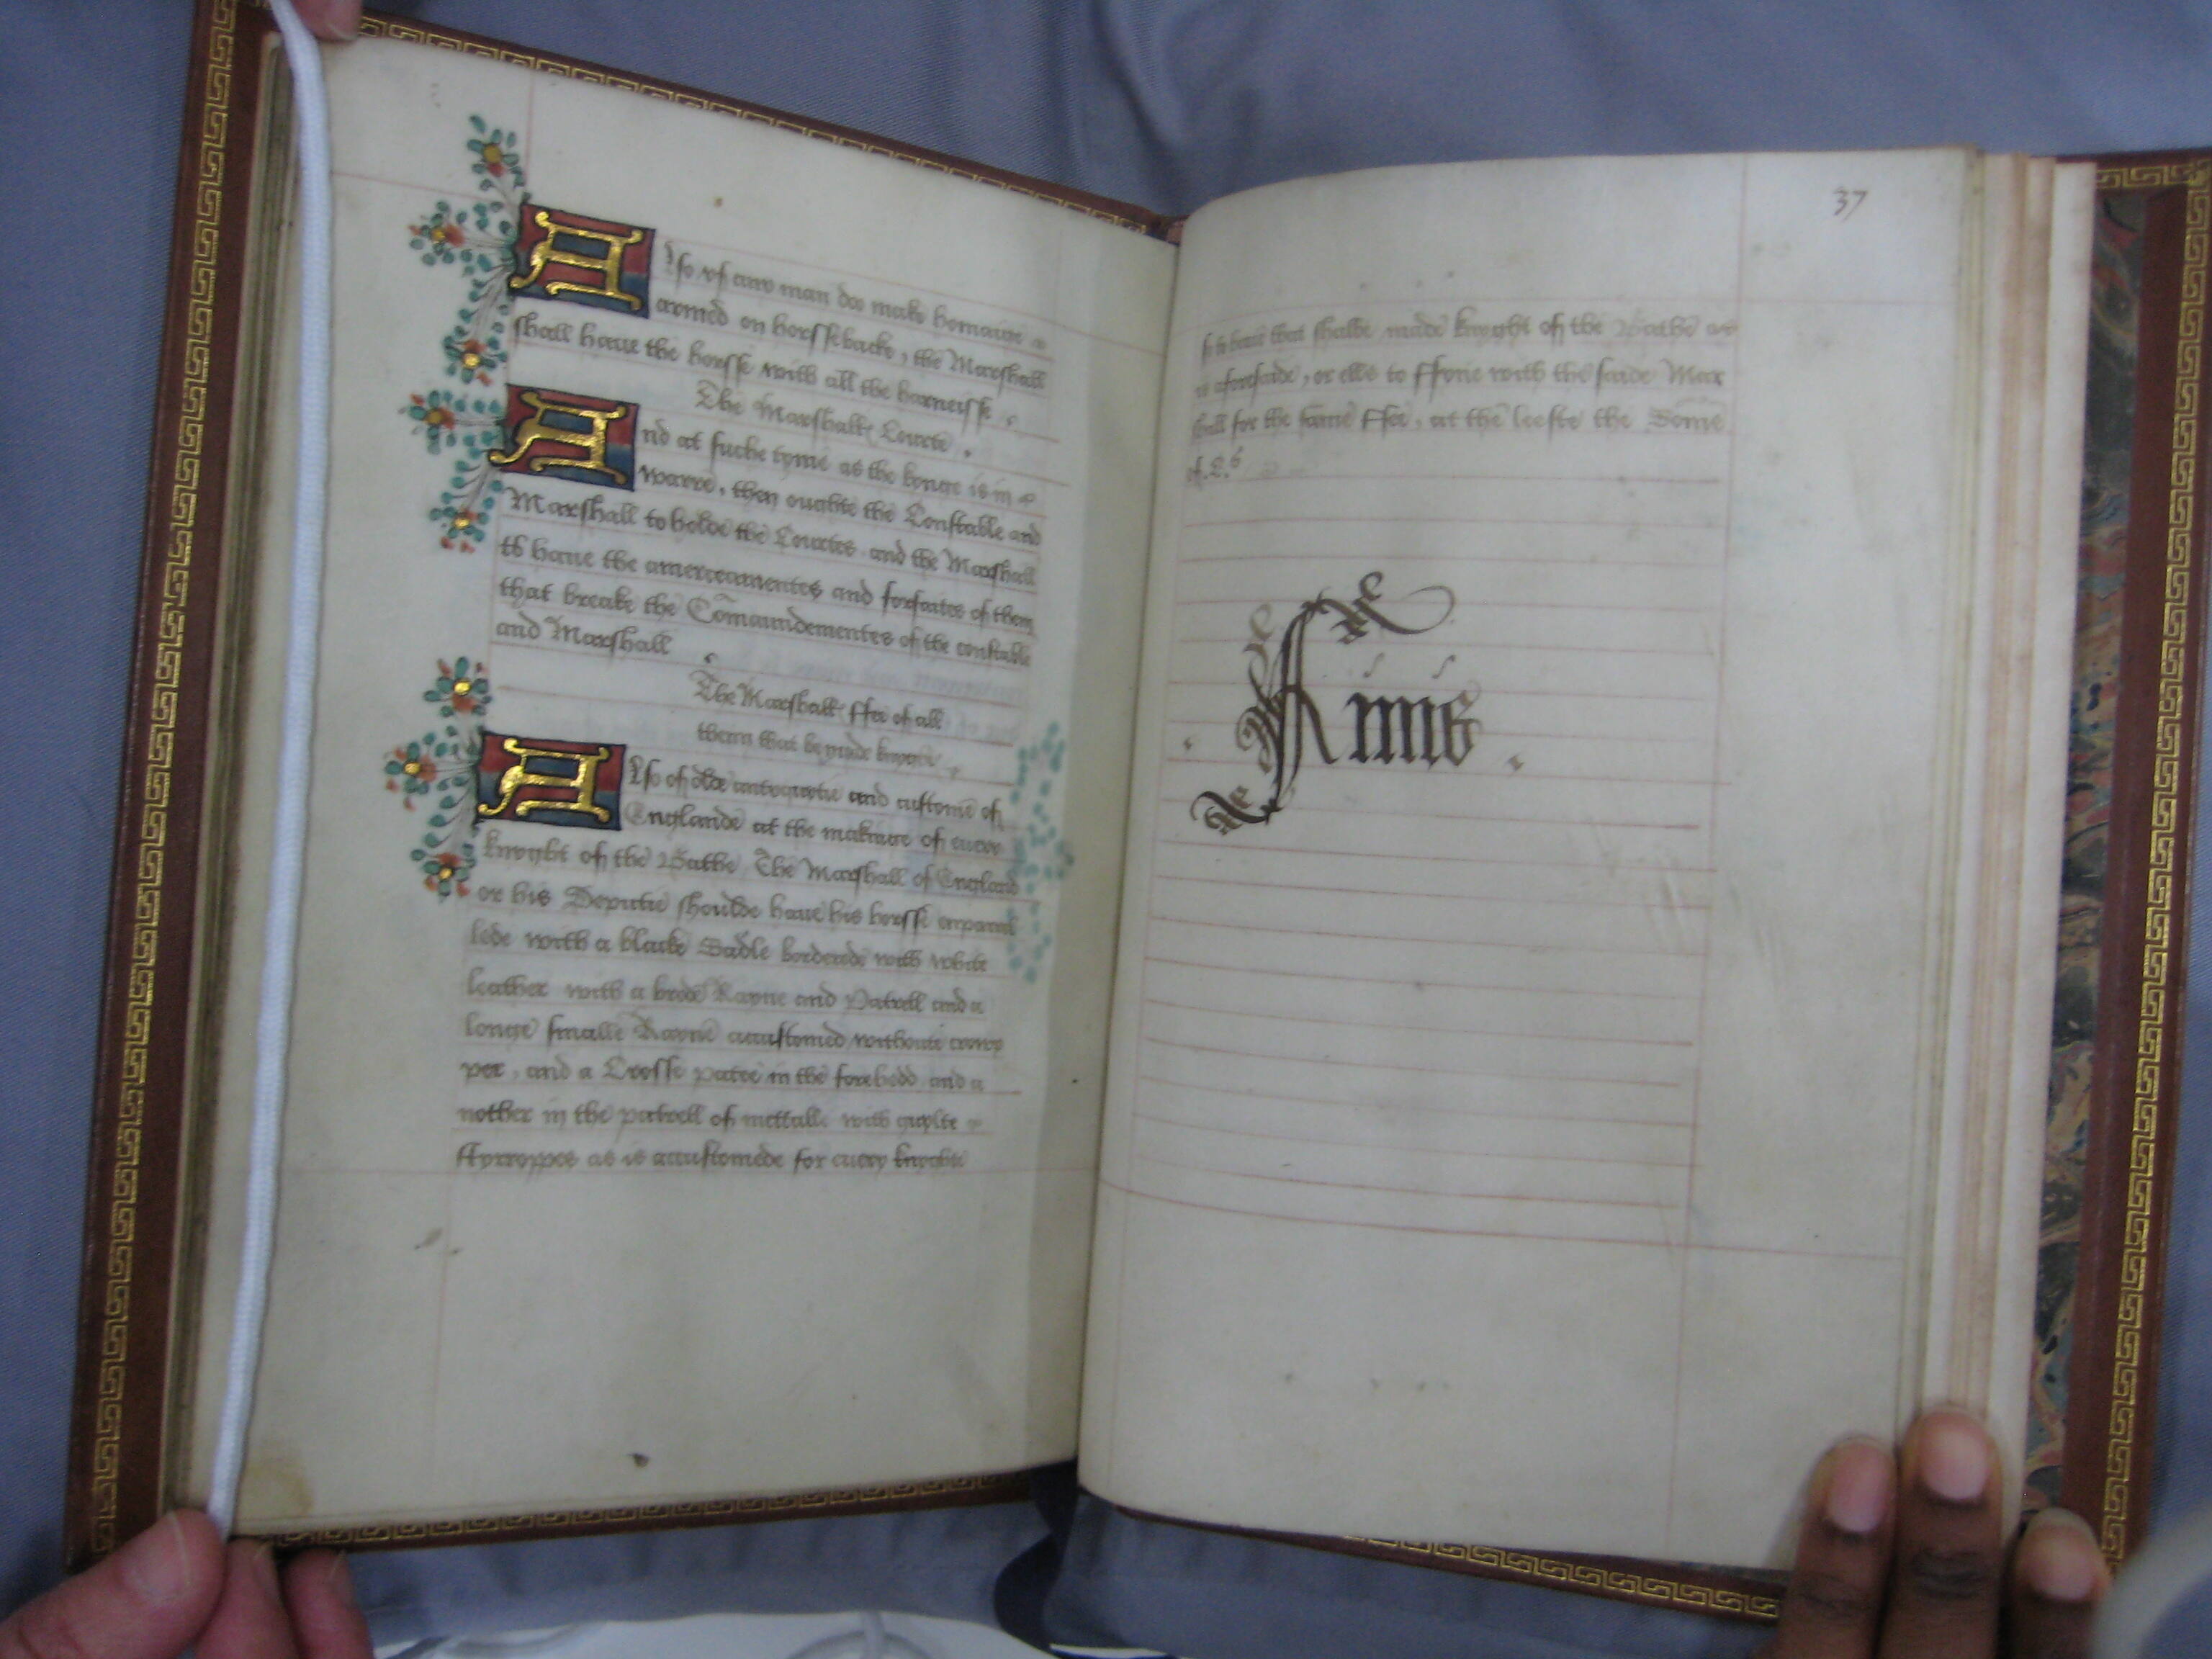 Also yf any man doe make homaige
armed on horssebacke, the Marshall
shall haue the horsse with all the harneisse.
The Marshalls Courte.
And at suche tyme as the kynge is in
warre, then oughte the Constable and
Marshall to holde the Courtes and the Marshall
to haue the amerceamentes and forfaites of them
that breake the Comaundementes of the constable
and Marshall
The Marshalls ffee of all
them that be made knyghtes
Also of olde antiquytie and custome of
Englande at the makinge of euery
knyght of the Bathe, The Marshall of England
or his Deputie shoulde haue his horsse apparai
lede with a blacke Sadle borderde with white
leather with a brode Rayne and Patrell and a
longe smalle Rayne accustomed withoute crowp
per, and a Crosse patee in the forehedd and a
nother in the patrell of mettalle with gylte
styrroppes as is accustomede for euery knyghte
37
so to haue that shalbe made knyght of the Bathe as
is aforesaide, or elles to ffyne with the saide Mar
shall for the same ffee, at the leeste the Some
of
ffinis